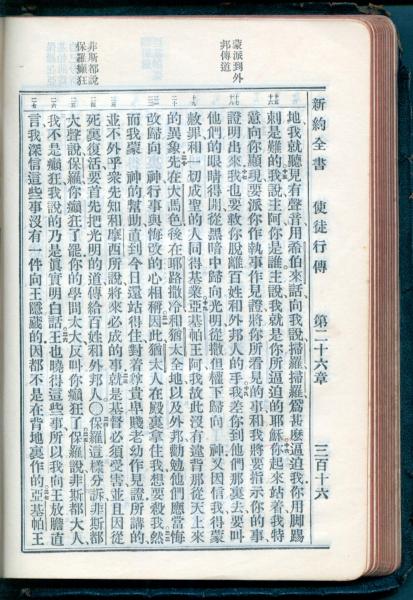 新約全書 使徒行傳 第二十六章 三百十六
蒙派到外
邦傳道
非斯都說
保羅癲狂
地我就聽見有聲音用希伯來話向我說、掃羅、掃羅、爲甚麼逼迫我、你用脚踢
刺是難的我說主阿、你是誰、主說我就是你所逼迫的耶穌、你起來站着、我特
意向你顯現、要派你作執事、作見證、將你所看見的事、和我將要指示你的事
證明出來、我也要救你脫離百姓和外邦人的手、我差你到他們那裏去、要叫
他們的眼睛得開、從黑暗中歸向光明、從撒但權下歸向 神、又因信我得蒙
赦罪、和一切成聖的人同得基業、亞基帕王阿、我故此沒有違背那從天上來
的異象、先在大馬色、後在耶路撒冷、和猶太全地、以及外邦、勸勉他們應當悔
改歸向 神、行事與悔改的心相稱、因此猶太人在殿裏拿住我、想要殺我、然
而我蒙 神的幫助、直到今日還站得住、對着尊貴卑賤老幼作見證、所講的
並不外乎衆先知和摩西所說將來必成的事、就是基督必須受害、並且因從
死裏復活、要首先把光明的道、傳給百姓和外邦人、〇保羅這樣分訴、非斯都
大聲說、保羅、你癲狂了罷、你的學問太大、反叫你癲狂了、保羅說、非斯都大人、
我不是癲狂、我說的乃是眞實明白話、王也曉得這些事、所以我向王放膽直
言、我深信這些事沒有一件向王隱藏的、因都不是在背地裏作的、亞基帕王